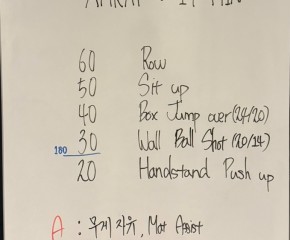 AMRAP
60 Row
50 Sit up
40 Box Jump over (24/20)
30 Wall Ball Shot (20/14)
180
20 Handstand Push up
A : 무게 자유, Mat Assist